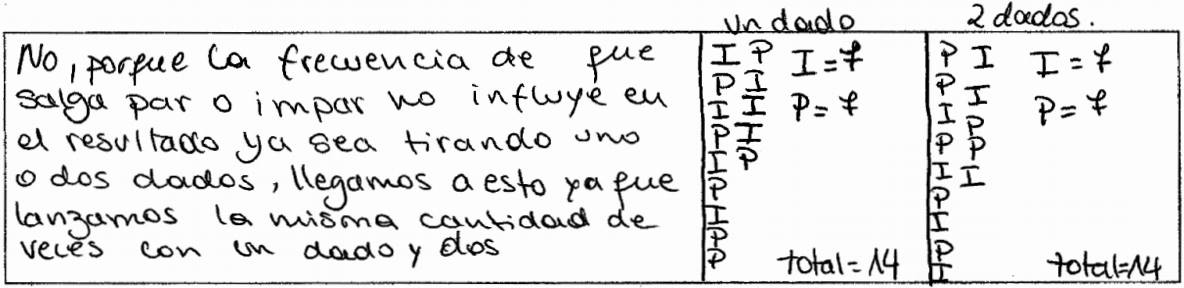 No, porque la frecuencia de que
salga par o impar no influye en
el resultado ya sea tirando uno
o dos dados, llegamos a esto ya que
lanzamos la misma cantidad de
veces con un dado y dos
Un dado
I P I = 7
P I
I I P = 7
P I
I P
P
I
P
P total = 14
2 dados.
P I I = 7
P I
I P P = 7
P P
I I
P
I
P
I total = 14